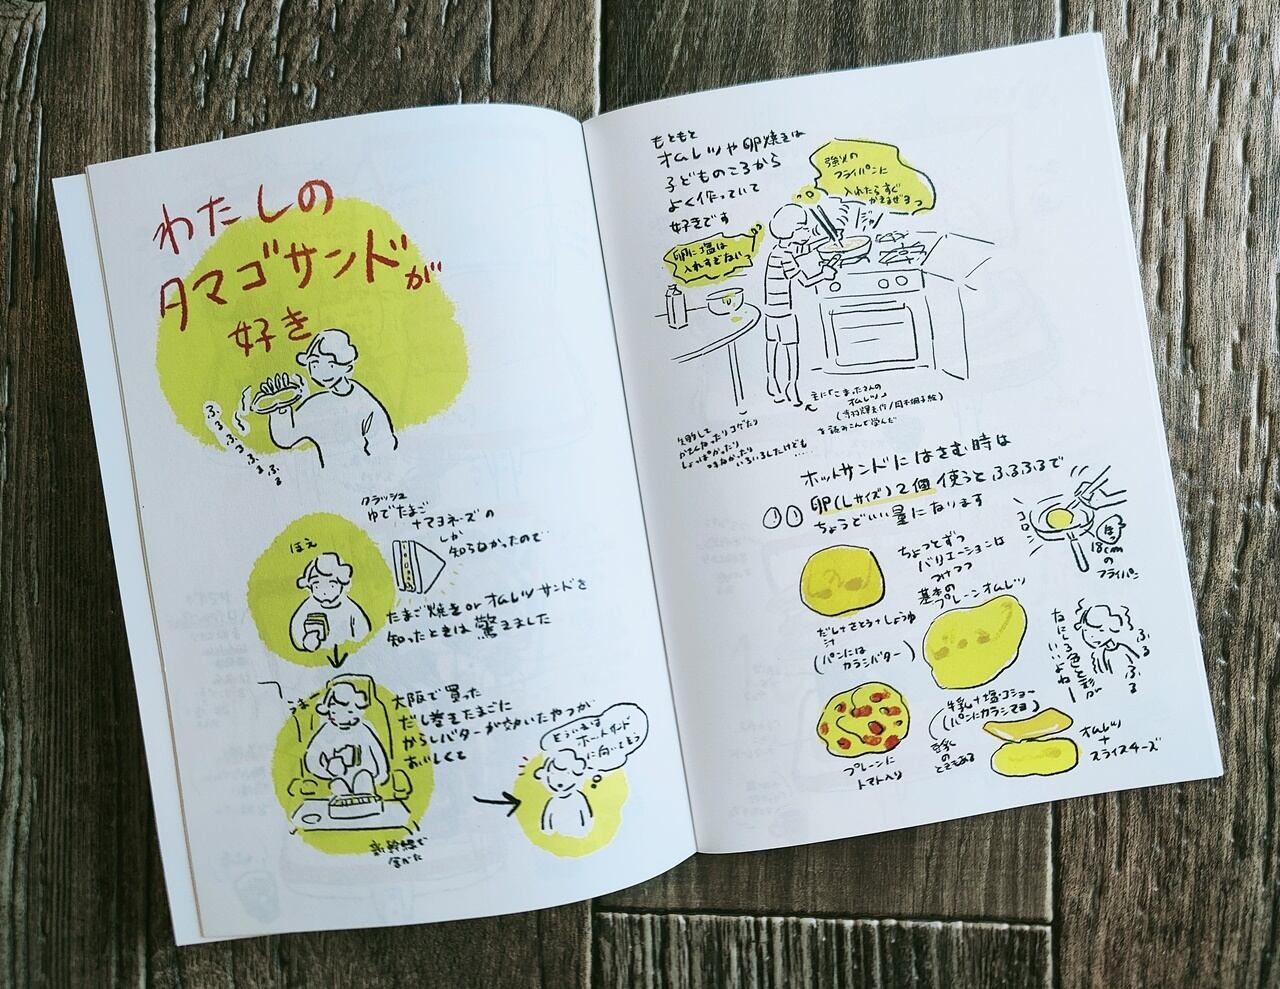 わたしの
タマゴサンドが
好き
ふるふる
ふるふるふる
クラッシュ
ゆでたまご
+マヨネーズの
しか
知らなかったので
ほえ
たまご焼き or オムレツサンドを
知ったときは驚きました
うま
大阪で買った
だし巻きたまごに
からしバターが効いたやつが
おいしくて
新幹線で
食べた
どういえば
ホットサンド
に向いてそう
もともと
オムレツや卵焼きは
子どものころから
よく作っていて
好きです
強火の
フライパンに
入れたらすぐ
かきまぜるっ
ジャッ
卵に塩は
入れすぎないっ
主に「こまったさんの
オムレツ」
(寺村輝夫作/岡本颯子絵)
を読みこんで学んだ
失敗して
かたくなったりコゲたり
しょっぱかったり
いろいろしたけども……
ホットサンドにはさむ時は
卵(Lサイズ)2個使うとふるふるで
ちょうどいい量になります
コロン
18cm
の
フライパン
ちょっとずつ
バリエーションは
つけつつ
基本の
プレーンオムレツ
だし+さとう+しょうゆ
汁
(パンには
カラシバター)
牛乳+塩・コショー
(パンにカラシマヨ)
豆乳
の
ときもある
なにしろ色と形が
いいよねー
ふる
ふる
ふる
プレーンに
トマト入り
オムレツ
+
スライスチーズ